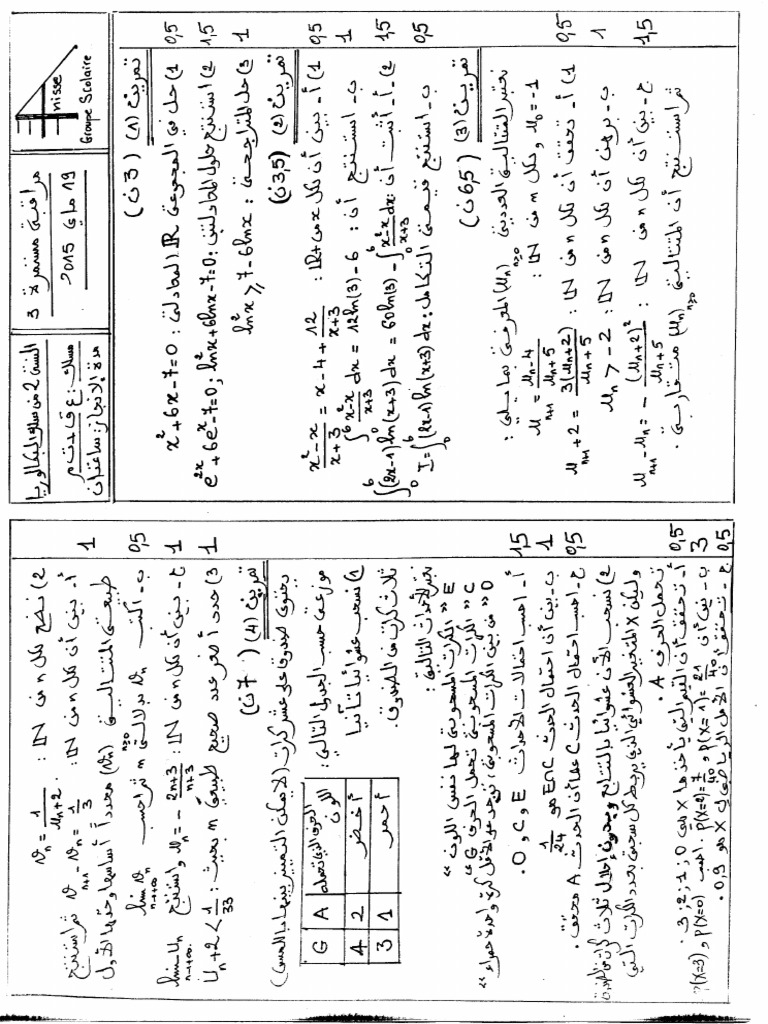 السنة 2 من سلك البكالوريا
مسلك: ع ف + ت م
مدة الإنجاز: ساعتان
مراقبة مستمرة 3
19 ماي 2015
nisse
Groupe Scolaire
تمرين (1) (3ن)
1) حل في المجموعة IR المعادلة: x²+6x-7=0 0,5
2) استنتج حلول المعادلتين: ln²x+6lnx-7=0 ; e^{2x}+6e^x-7=0 1,5
3) حل المتراجحة: ln²x ≥ 7-6lnx 1
تمرين (2) (3,5ن)
1) أ- بين أن لكل x من IR+: (x²-x)/(x+3) = x-4+12/(x+3) 0,5
ب- استنتج أن: ∫₀⁶ (x²-x)/(x+3) dx = 12ln(3)-6 1
2) أ- أثبت أن: ∫₀⁶ (2x-1)ln(x+3)dx = 60ln(3) - ∫₀⁶ (x²-x)/(x+3) dx 1,5
ب- استنتج قيمة التكامل: I=∫₀⁶ (2x-1)ln(x+3)dx 0,5
تمرين (3) (6,5ن)
نعتبر المتتالية العددية (u_n)_{n≥0} المعرفة بما يلي:
u_0=-1 ولكل n من IN: u_{n+1} = (u_n-4)/(u_n+5)
1) أ- تحقق أن لكل n من IN: u_{n+1}+2 = 3(u_n+2)/(u_n+5) 0,5
ب- برهن أن لكل n من IN: u_n > -2 1
ج- بين أن لكل n من IN: u_{n+1}-u_n = -(u_n+2)²/(u_n+5) 1,5
ثم استنتج أن المتتالية (u_n)_{n≥0} متقاربة.
2) نضع لكل n من IN: v_n = 1/(u_n+2)
أ- بين أن لكل n من IN: v_{n+1}-v_n = 1/3 ثم استنتج 1
طبيعة المتتالية (v_n)_{n≥0} محددا أساسها وحدها الأول
ب- أكتب v_n بدلالة n ثم احسب lim v_n n→+∞ 0,5
ج- بين أن لكل n من IN: u_n = -(2n+3)/(n+3) واستنتج lim u_n n→+∞. 1
3) حدد أصغر عدد صحيح طبيعي n بحيث: u_n+2 < 1/33 1
تمرين (4) (7ن)
يحتوي صندوق على عشر كرات (لا يمكن التمييز بينها باللمس)
موزعة حسب الجدول التالي:
الحرف الذي تحمله اللون A G
أخضر 2 4
أحمر 1 3
1) نسحب عشوائيا تآنيا
ثلاث كرات من الصندوق.
نعتبر الأحداث التالية:
E "الكرات المسحوبة لها نفس اللون"
C "الكرات المسحوبة تحمل الحرف G"
O "من بين الكرات المسحوبة، توجد على الأقل كرة واحدة حمراء"
أ- احسب احتمالات الأحداث E و C و O. 1,5
ب- بين أن احتمال الحدث E∩C هو 1/24 1
ج- احسب احتمال الحدث C علما أن الحدث A محقق. 0,5
2) نسحب الآن عشوائيا بالتتابع وبدون إحلال ثلاث كرات من الصندوق
وليكن X المتغير العشوائي الذي يربط كل سحبة بعدد الكرات التي
تحمل الحرف A.
أ- تحقق أن القيم التي يأخذها X هي 0;1;2;3. 0,5
ب- بين أن p(X=1)=21/40 و p(X=2)=7/40. احسب p(X=0) و p(X=3) 3
ج- تحقق أن الأمل الرياضي لـ X هو 0,9. 0,5